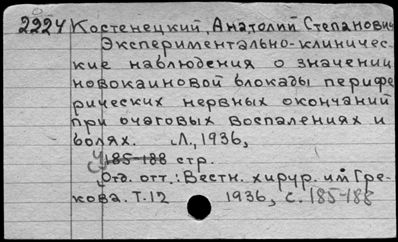 2224 Костенецкий, Анатолий Степанович
Экспериментально-клиничес-
кие наблюдения о значении
новокаиновой блокады перифе
рических нервных окончаний
при очаговых воспалениях и
болях. Л., 1936,
185-188 стр.
Отд. отт.: Вестн. хирур. им Гре-
кова. Т.12 1936, с. 185-188